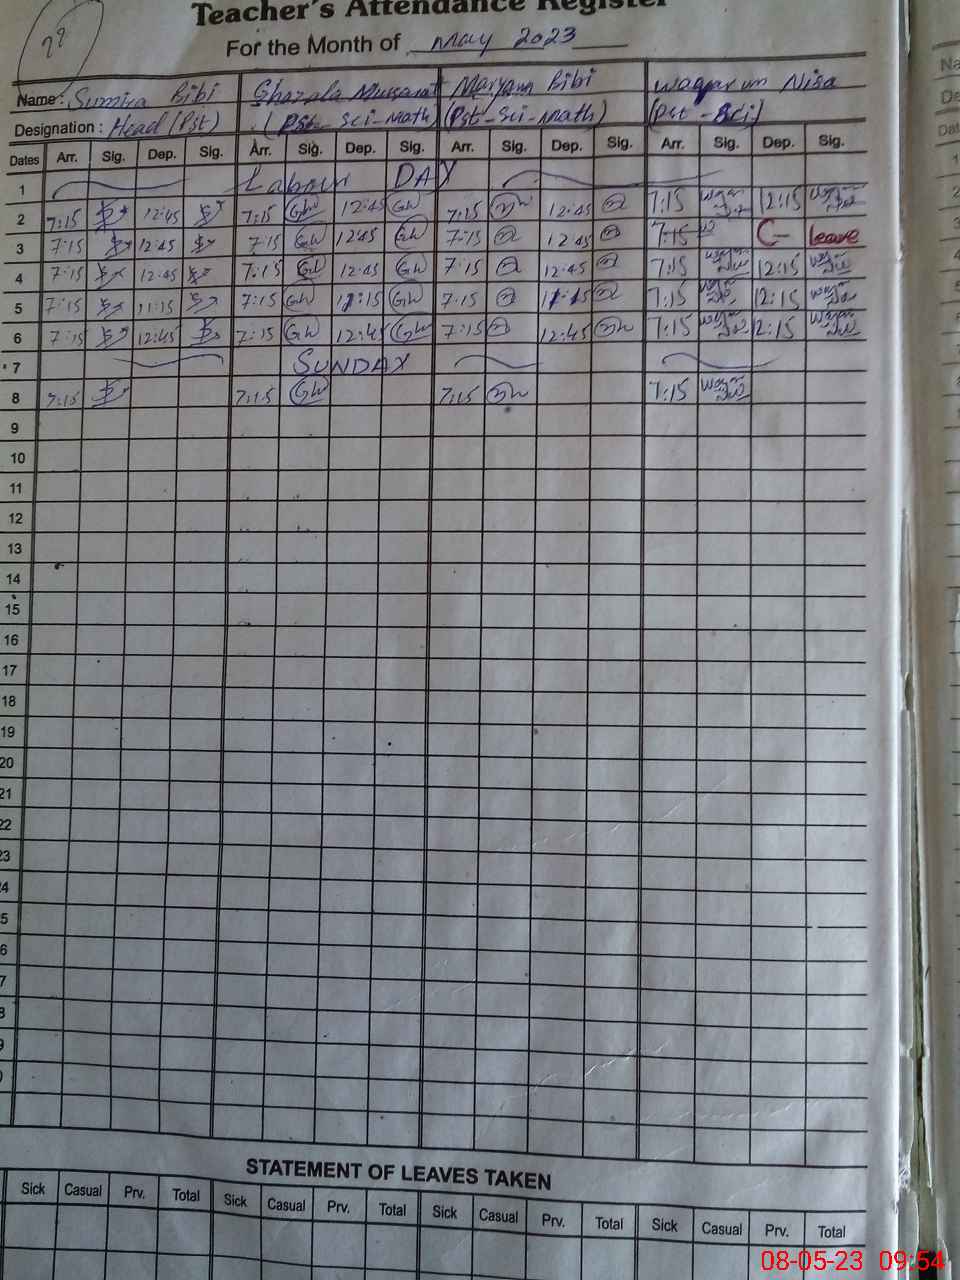 22
Teacher's Attendance Register
For the Month of May 2023
Name: Sumira Bibi Ghazala Musarat Maryam Bibi Waqar un Nisa
Designation: Head (Pst) (Pst-Sci-Math) (Pst-Sci-Math) (Pst-Sci)
Dates Arr. Sig. Dep. Sig. Arr. Sig. Dep. Sig. Arr. Sig. Dep. Sig. Arr. Sig. Dep. Sig.
1 Labour DAY
2 7:15 12:45 7:15 GW 12:45 GW 7:15 12:45 7:15 12:15
3 7:15 12:45 7:15 GW 12:45 GW 7:15 12:45 7:15 C- leave
4 7:15 12:45 7:15 GW 12:45 GW 7:15 12:45 7:15 12:15
5 7:15 11:15 7:15 GW 11:15 GW 7:15 11:15 7:15 12:15
6 7:15 12:45 7:15 GW 12:45 GW 7:15 12:45 7:15 12:15
7 SUNDAY
8 7:15 7:15 GW 7:15 7:15
9
10
11
12
13
14
15
16
17
18
19
20
21
22
23
24
25
26
7
8
9
0
STATEMENT OF LEAVES TAKEN
Sick Casual Prv. Total Sick Casual Prv. Total Sick Casual Prv. Total Sick Casual Prv. Total
08-05-23 09:54